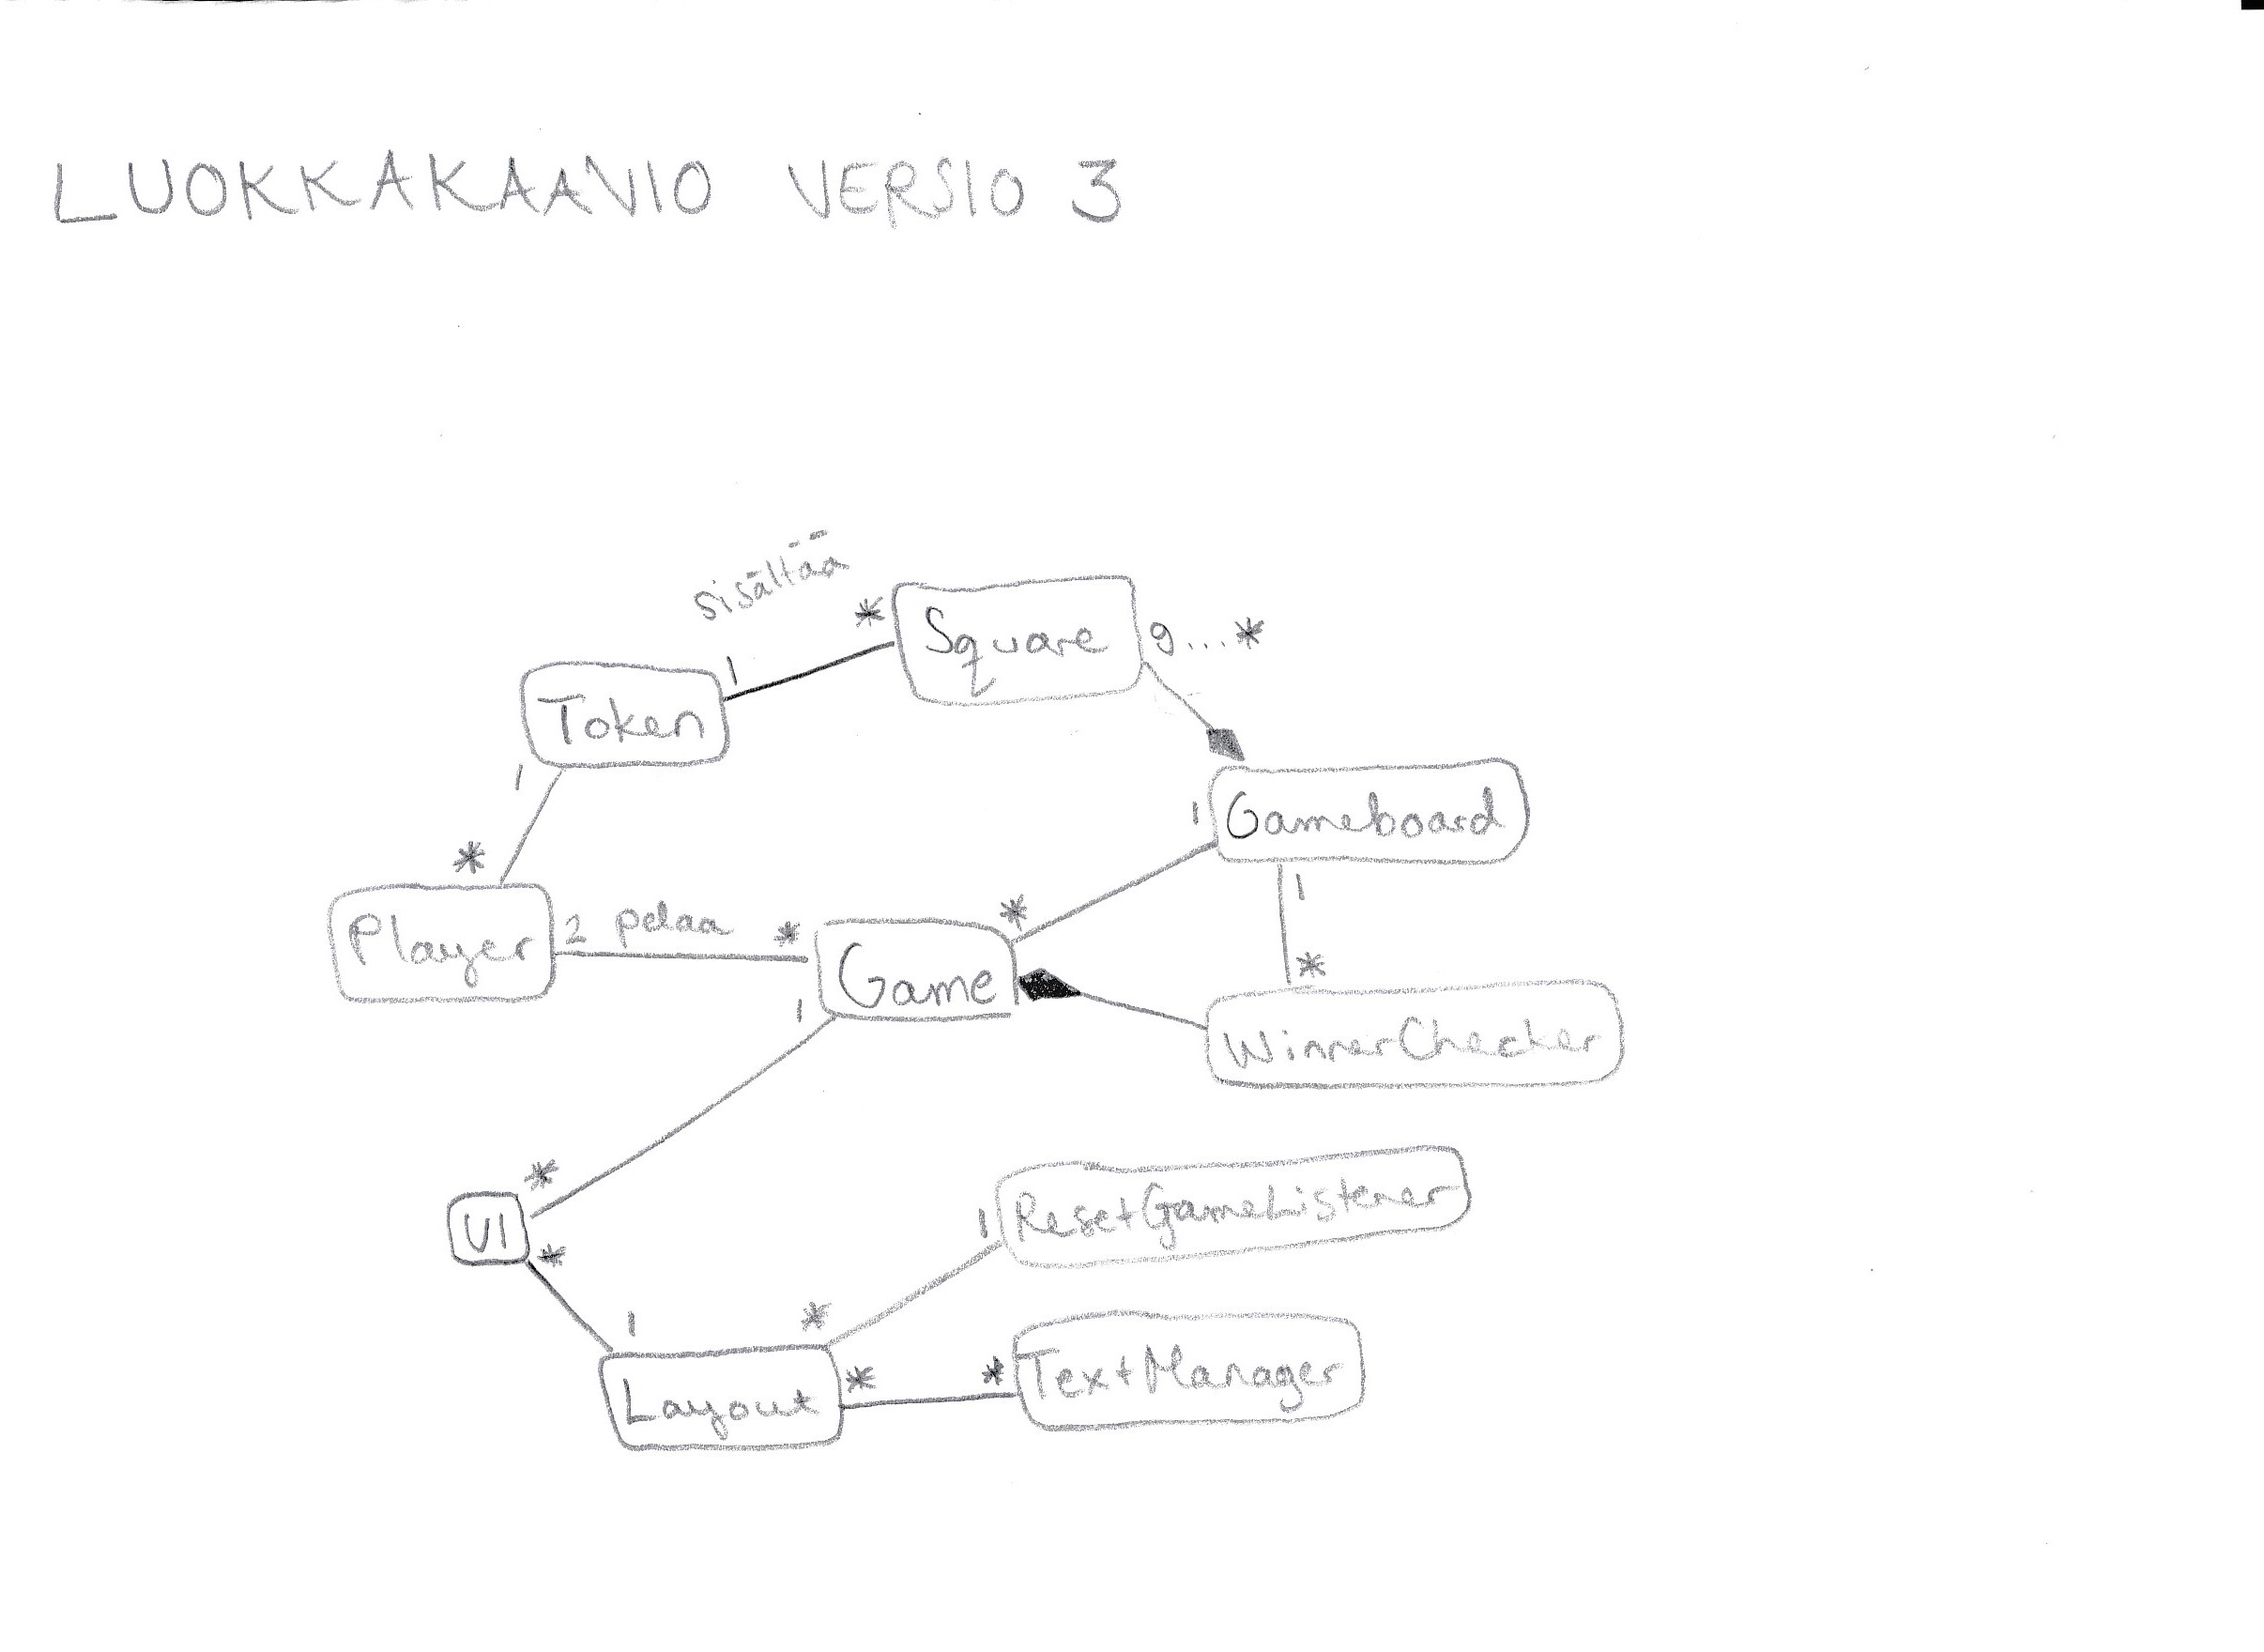 LUOKKAKAAVIO VERSIO 3
sisältää
* Square 9....*
1
Token
1 Gameboard
1
*
1
Player 2 pelaa * Game *
*
1
WinnerChecker
*
UI
*
1 ResetGameListener
1
*
Layout * * TextManager